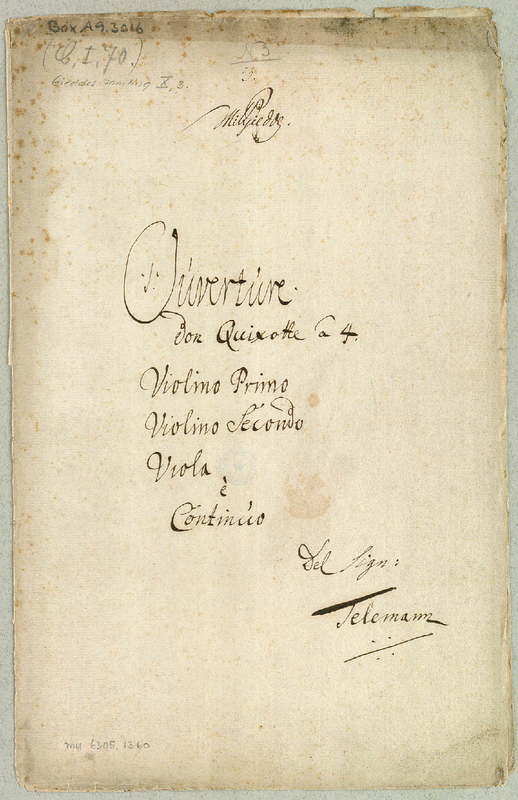 Box A9.3016
(C, I, 70.)
No 3
Gieddes Samling X, 3.
Ouverture.
don Quixotte a 4.
Violino Primo
Violino Secondo
Viola
è
Continúo
Del Sign:
Telemann
mu 6305.1360